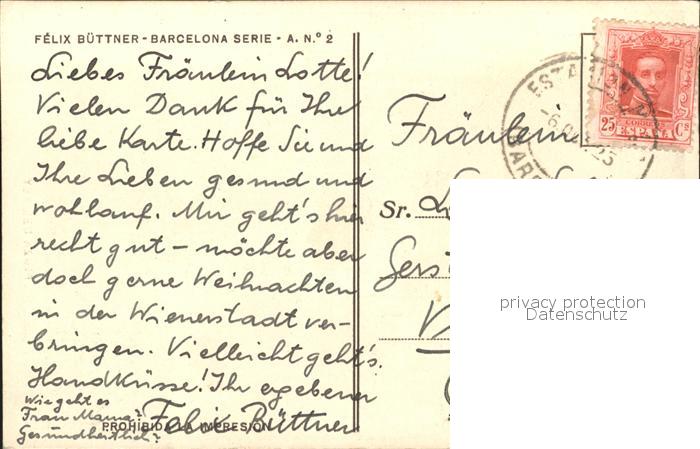 FÉLIX BÜTTNER - BARCELONA SERIE - A. N.º 2
Liebes Fräulein Lotte!
Vielen Dank für Ihre
liebe Karte. Hoffe Sie und
Ihre Lieben gesund und
wohlauf. Mir geht's hier
recht gut – möchte aber
doch gerne Weihnachten
in der Wienerstadt ver-
bringen. Vielleicht geht's.
Handküsse! Ihr ergebener
Felix Büttner
Wie geht es
Frau Mama?
Gesundheitlich?
PROHIBIDA LA IMPRESIÓN
CORREOS
25 ESPAÑA Cs
Fräulein
Sr.
privacy protection
Datenschutz